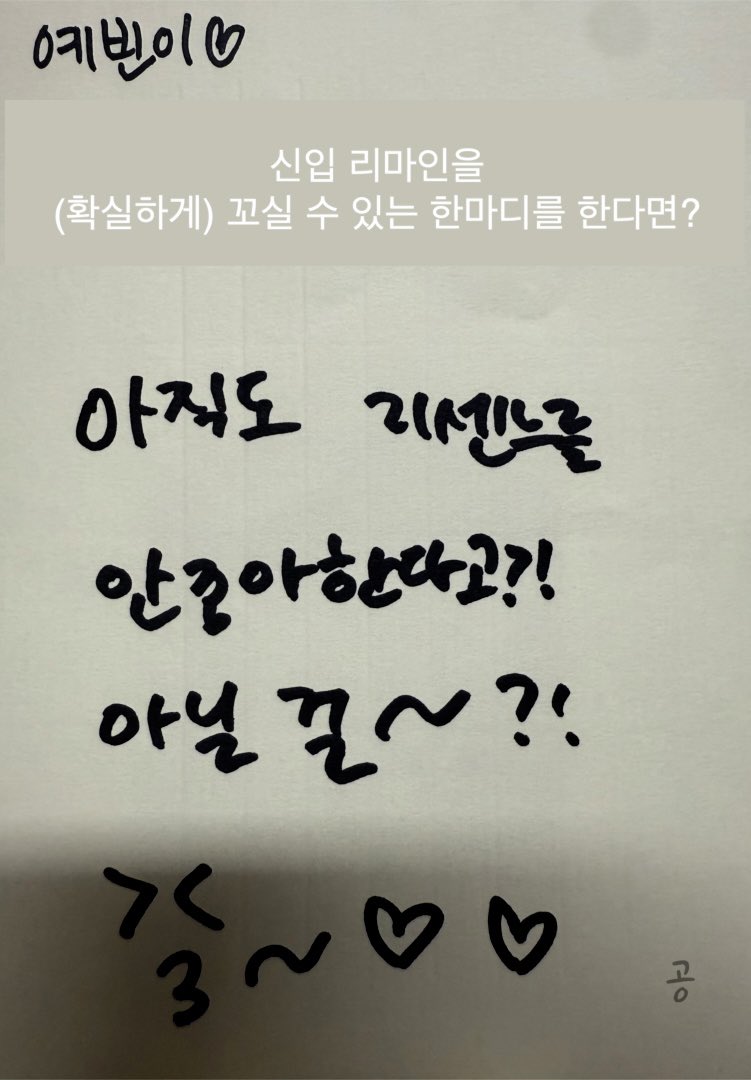 예빈이♡
신입 리마인을
(확실하게) 꼬실 수 있는 한마디를 한다면?
아직도 리센느를
안조아한다고?!
아닐 껄~?!
><
3~♡♡
공